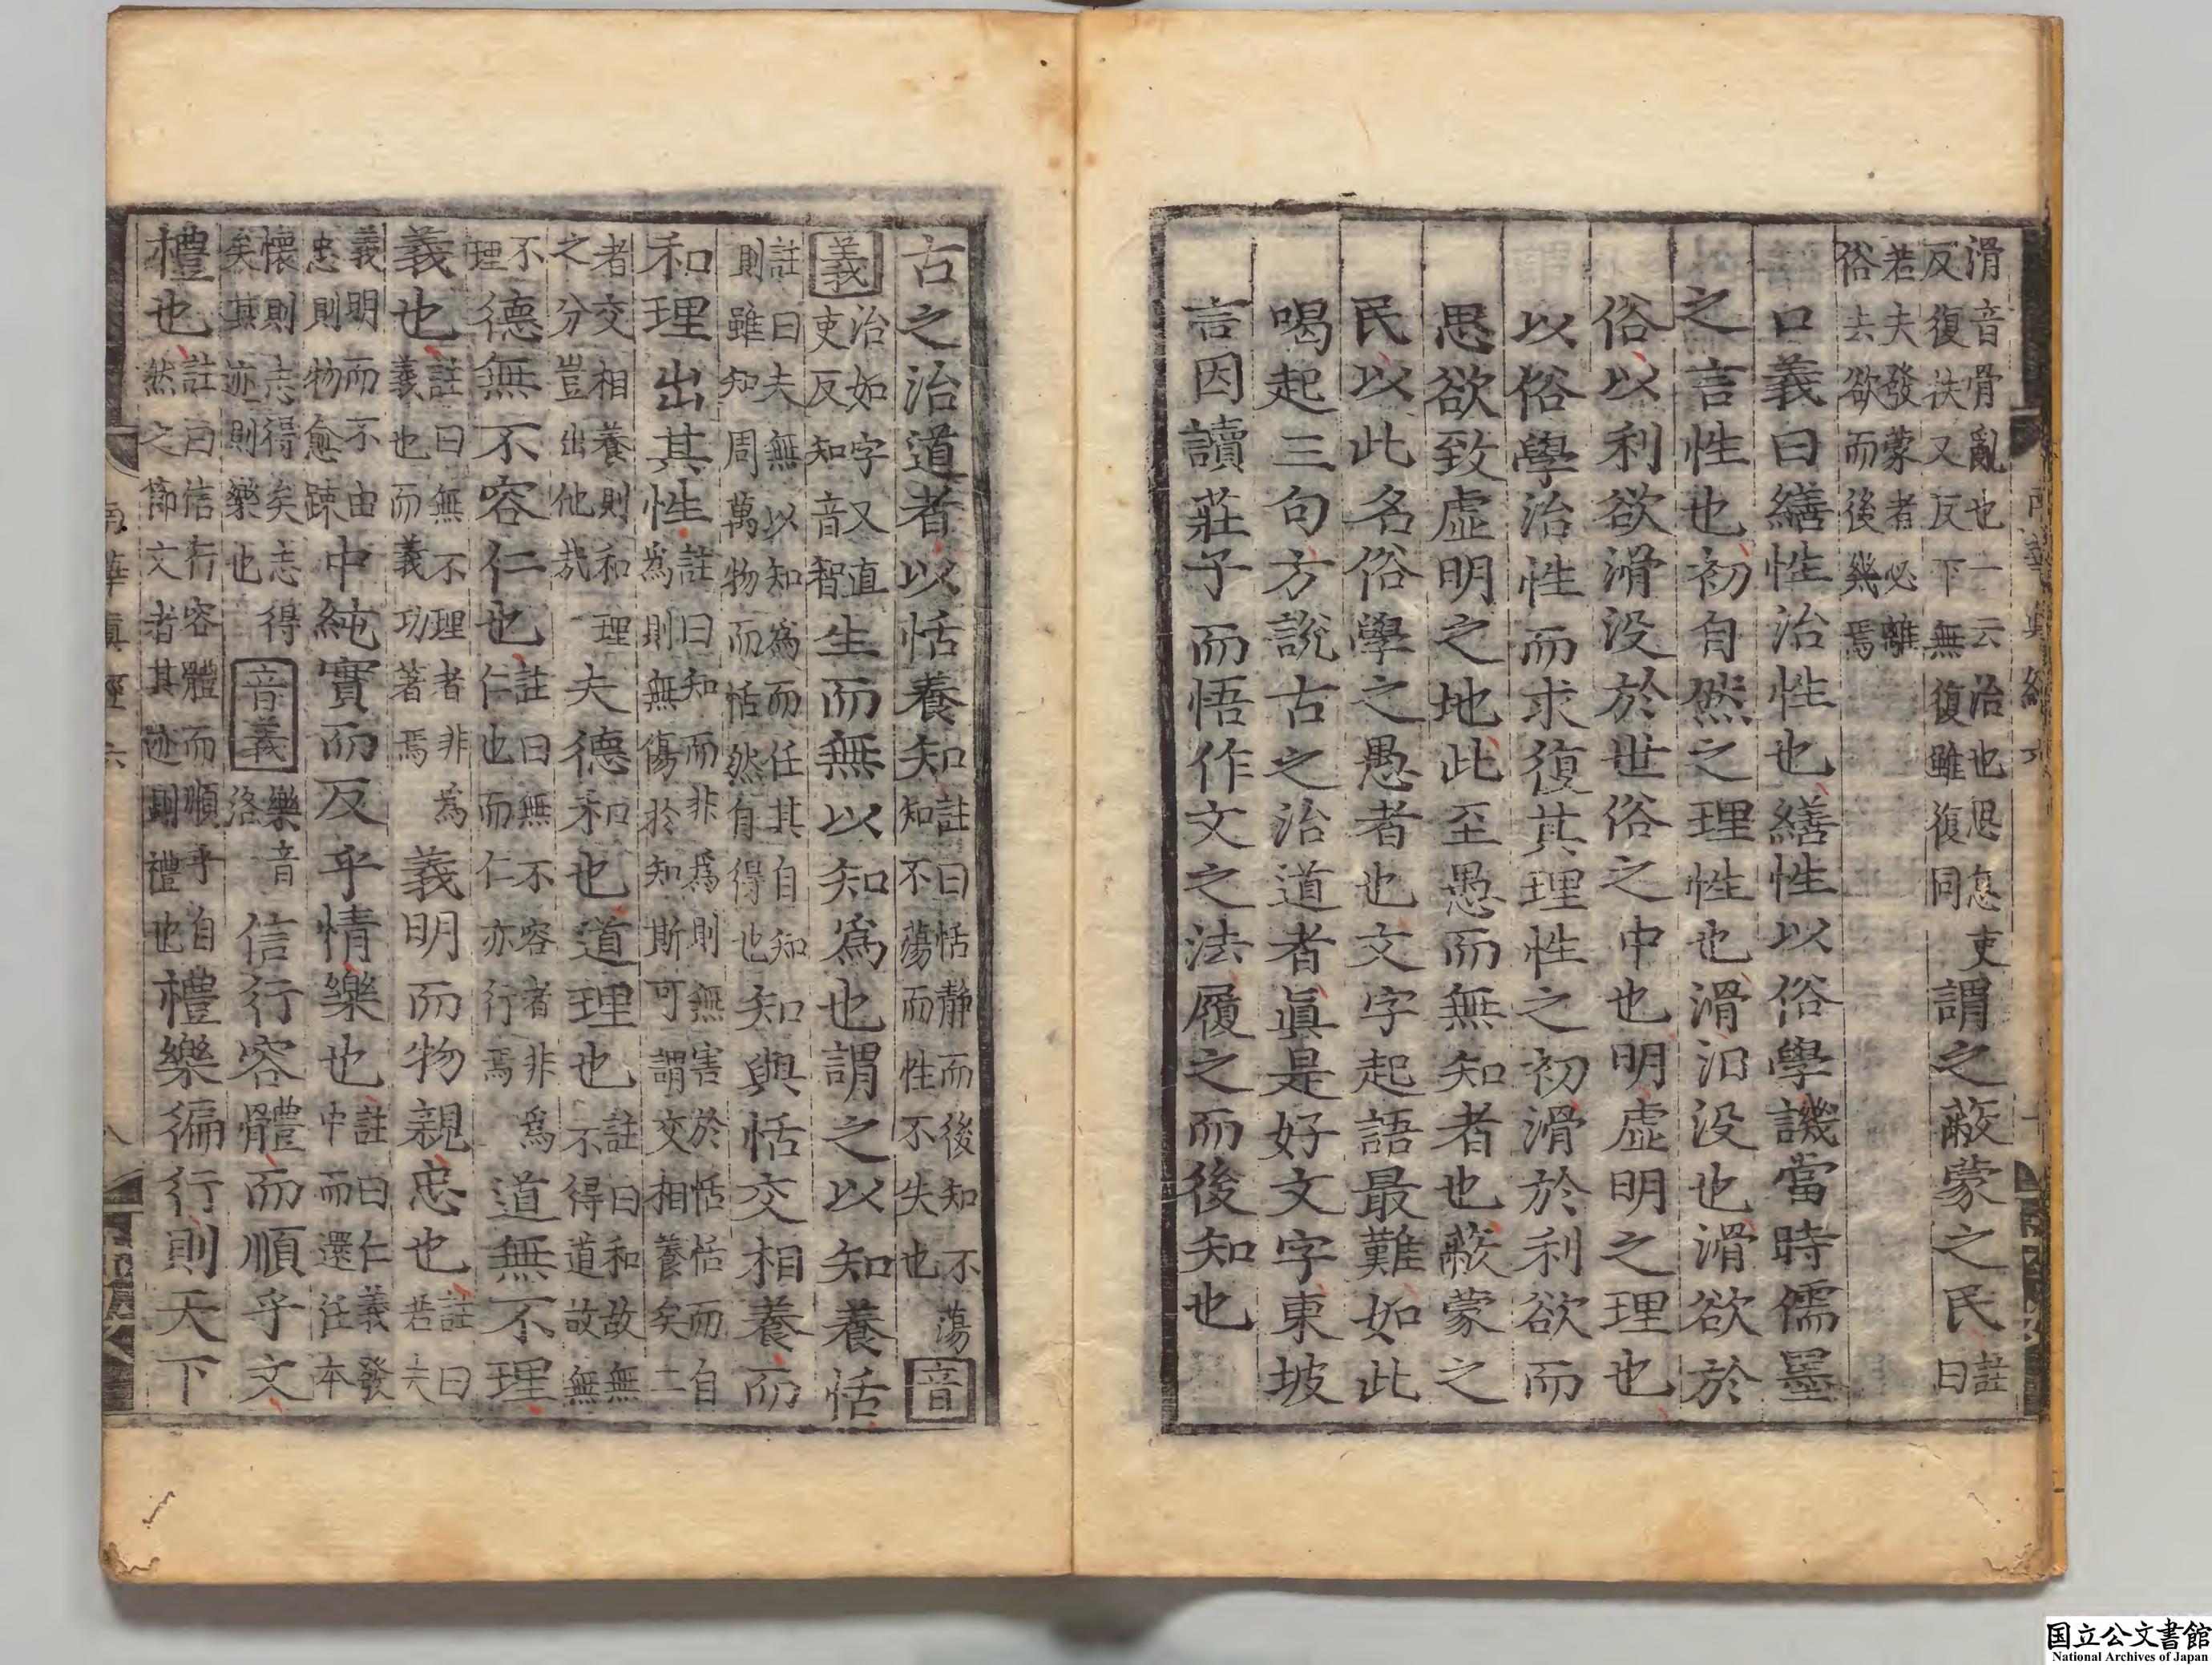 滑音骨亂也一云治也思息吏
反復扶又反下無復雖復同謂之蔽蒙之民註曰
若夫發蒙者必離
俗去欲而後幾焉
口義曰繕性治性也繕性以俗學譏當時儒墨
之言性也初自然之理性也滑汩没也滑欲於
俗以利欲滑没於世俗之中也明虛明之理也
以俗學治性而求復其理性之初滑於利欲而
思欲致虛明之地此至愚而無知者也蔽蒙之
民以此名俗學之愚者也文字起語最難如此
喝起三句方說古之治道者眞是好文字東坡
言因讀莊子而悟作文之法履之而後知也
古之治道者以恬養知註曰恬静而後知不蕩
知不蕩而性不失也音
義治如字又直
吏反知音智生而無以知爲也謂之以知養恬
註曰夫無以知爲而任其自知
則雖知周萬物而恬然自得也知與恬交相養而
和理出其性註曰知而非爲則無害於恬恬而自
爲則無傷於知斯可謂交相養矣二
者交相養則和理
之分豈出他哉夫德和也道理也註曰和故無
不得道故無
不
理德無不容仁也註曰無不容者非爲
仁也而仁亦行焉道無不理
義也註曰無不理者非爲
義也而義功著焉義明而物親忠也註曰
若夫
義明而不由
忠則物愈踈中純實而反乎情樂也註曰仁義發
中而還任本
懷則志得矣志得
矣其迹則樂也音義樂音
洛信行容體而順乎文
禮也註曰信行容體而順乎自
然之節文者其迹則禮也禮樂徧行則天下
南華真經六
国立公文書館
National Archives of Japan